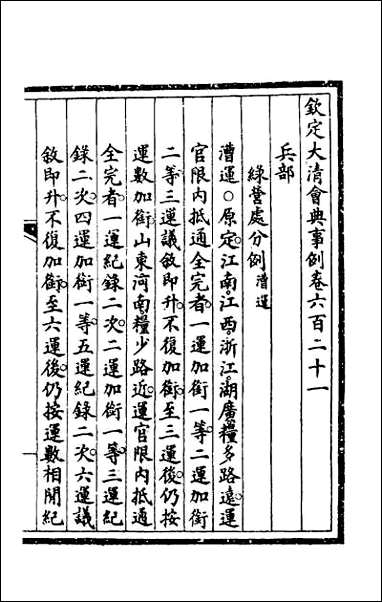 欽定大清會典事例卷六百二十一
兵部
綠營處分例漕運
漕運○原定江南江西浙江湖廣糧多路遠運
官限内抵通全完者一運加銜一等二運加銜
二等三運議敘即升不復加銜至三運後仍按
運數加銜山東河南糧少路近運官限内抵通
全完者一運紀錄二次二運加銜一等三運紀
錄二次四運加銜一等五運紀錄二次六運議
敘即升不復加銜至六運後仍按運數相閒紀